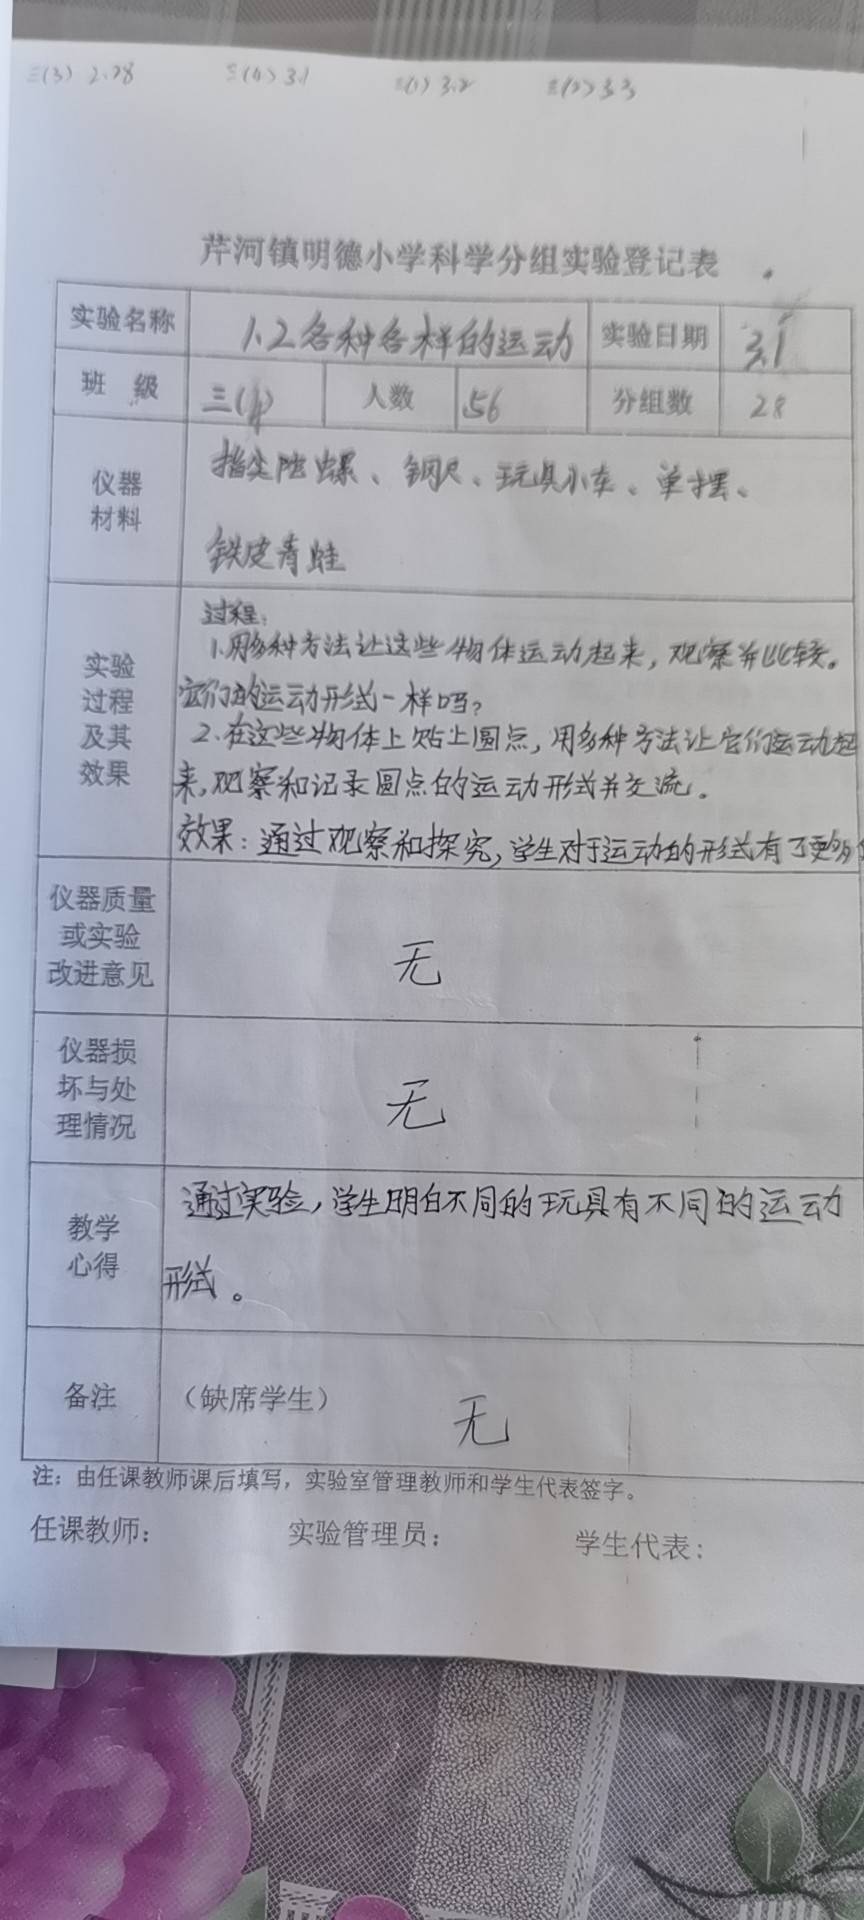 三(3) 2.28 三(4) 3.1 三(1) 3.2 三(2) 3.3
芹河镇明德小学科学分组实验登记表
实验名称 1.2各种各样的运动 实验日期 3.1
班 级 三(4) 人数 56 分组数 28
仪器
材料
指尖陀螺、钢尺、玩具小车、单摆、
铁皮青蛙
实验
过程
及其
效果
过程:
1.用多种方法让这些物体运动起来,观察并比较。
它们的运动形式一样吗?
2.在这些物体上贴上圆点,用多种方法让它们运动起
来,观察和记录圆点的运动形式并交流。
效果:通过观察和探究,学生对于运动的形式有了更多
仪器质量
或实验
改进意见
无
仪器损
坏与处
理情况
无
教学
心得
通过实验,学生明白不同的玩具有不同的运动
形式。
备注 (缺席学生) 无
注:由任课教师课后填写,实验室管理教师和学生代表签字。
任课教师: 实验管理员: 学生代表: